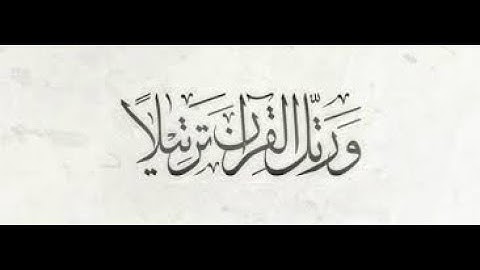 وَرَتِّلِ الْقُرْآنَ تَرْتِيلًا